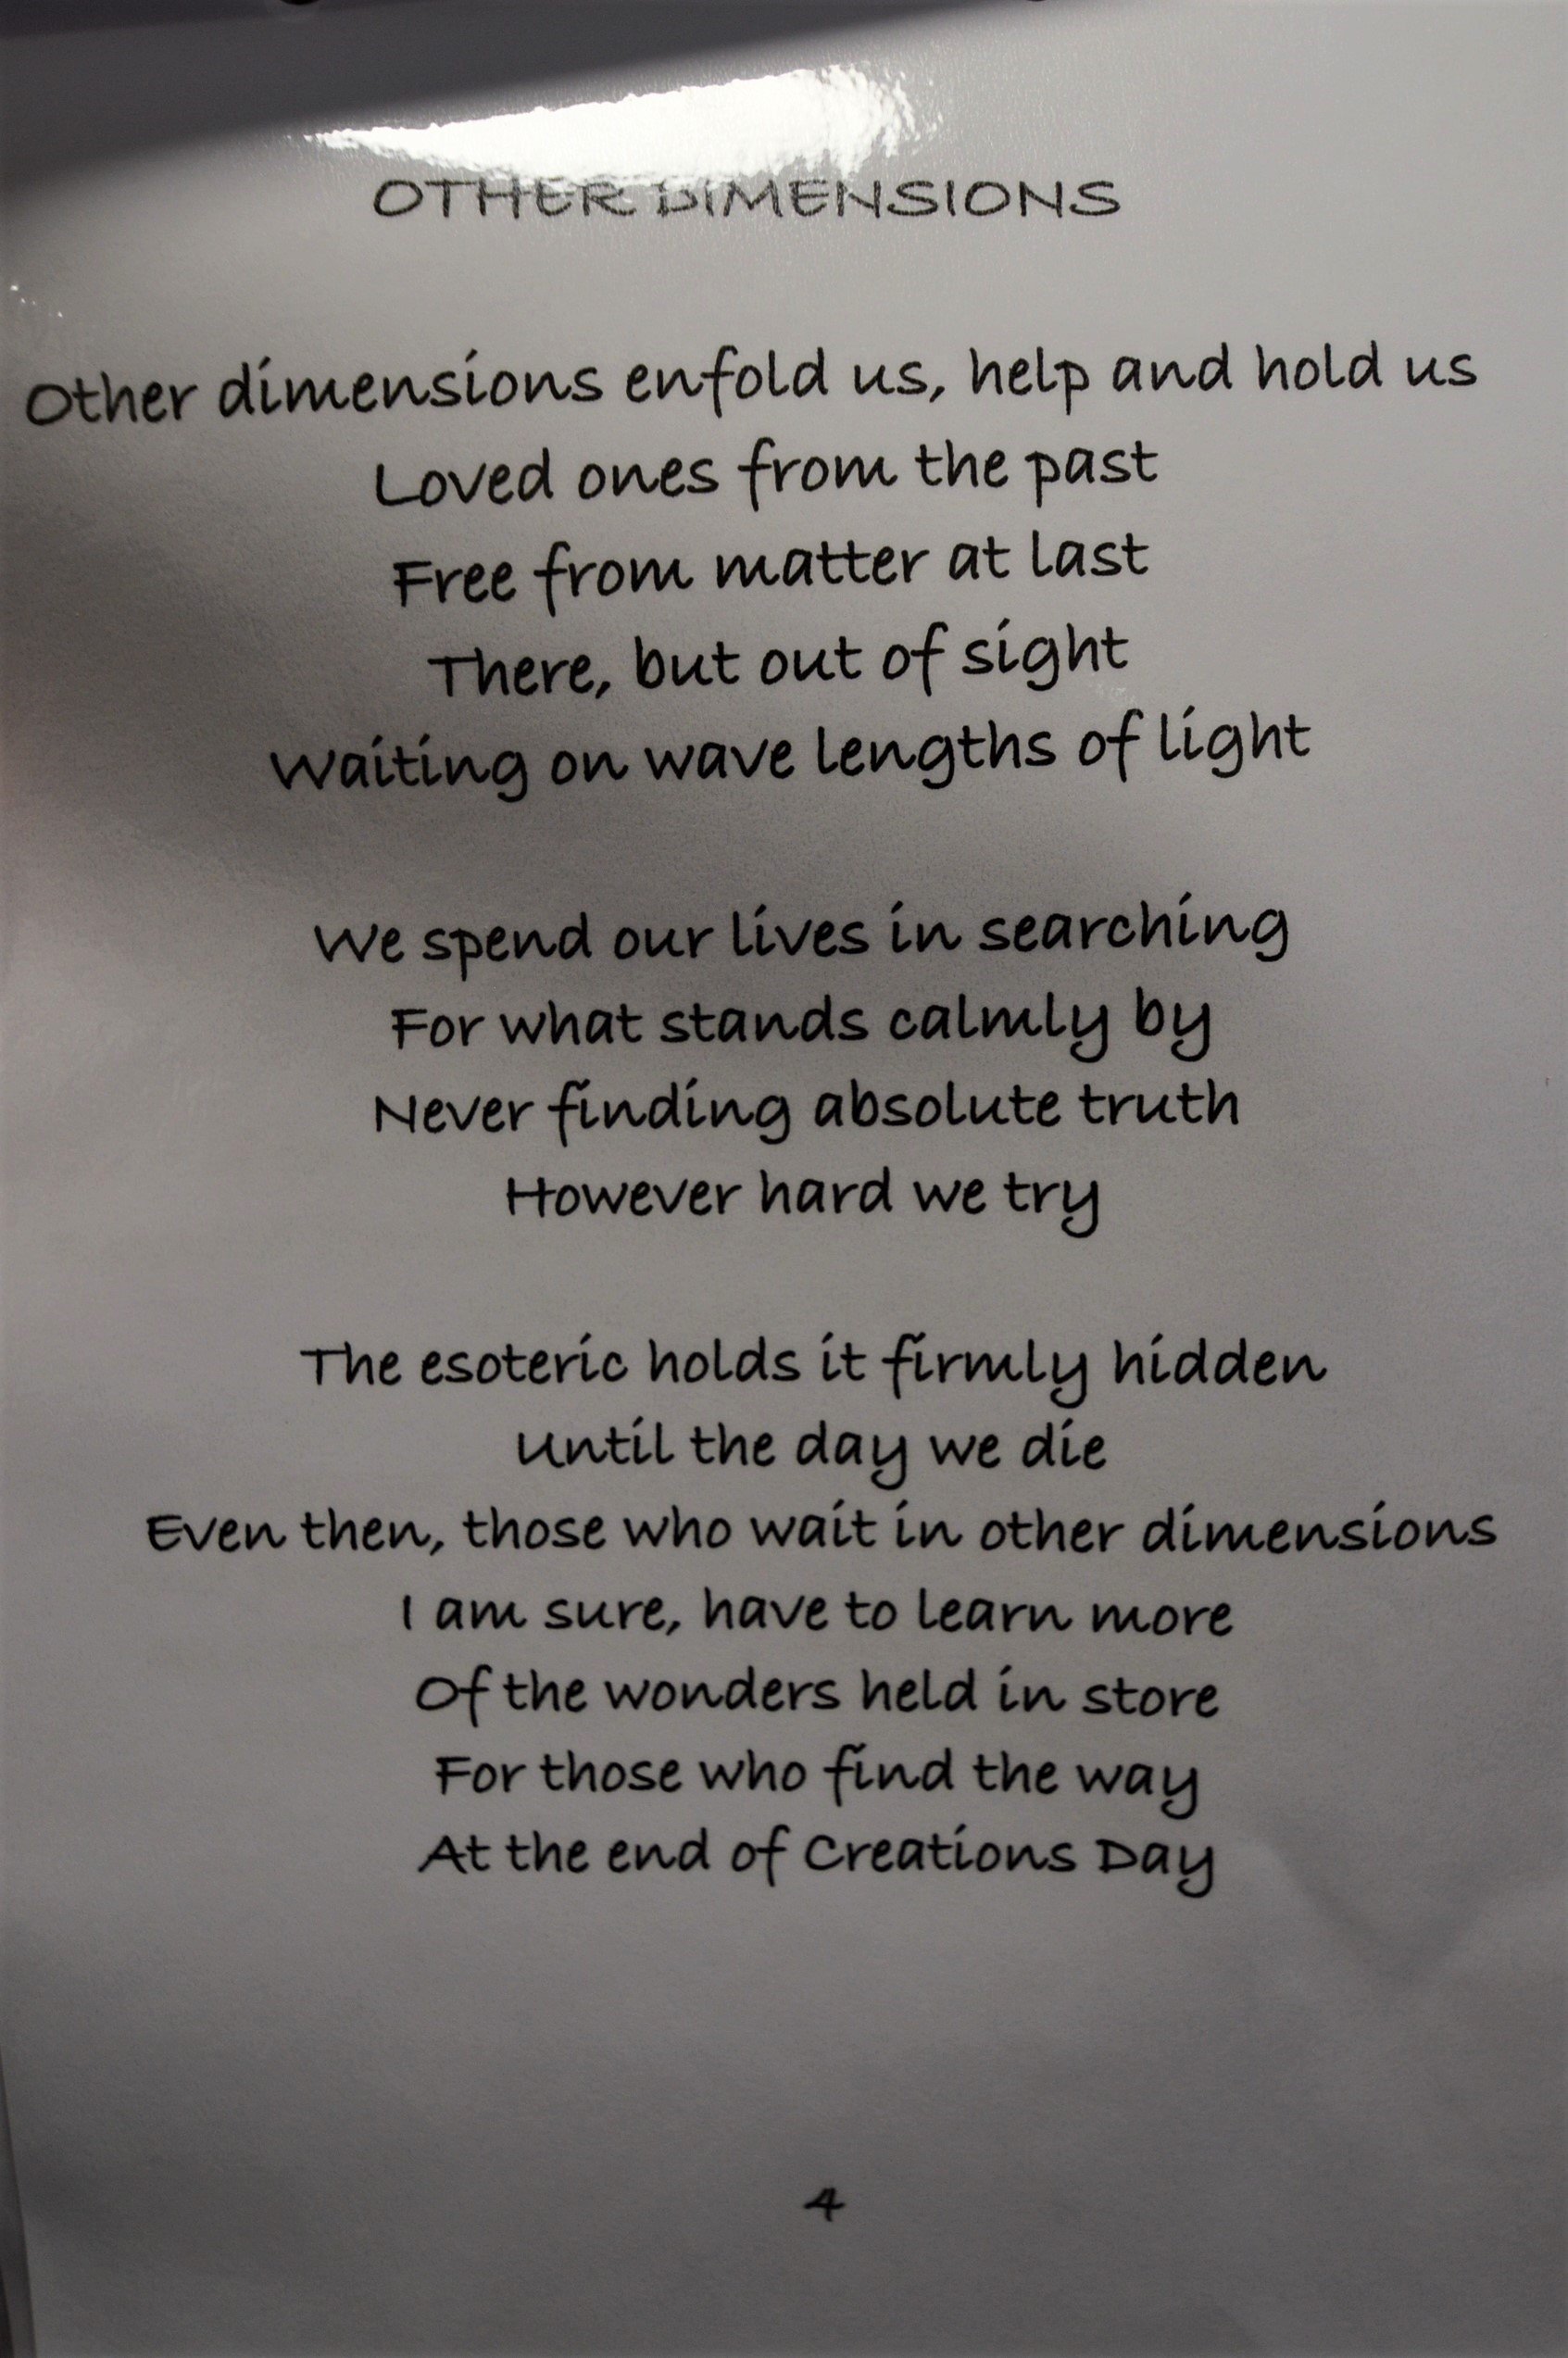 OTHER DIMENSIONS
Other dimensions enfold us, help and hold us
Loved ones from the past
Free from matter at last
There, but out of sight
Waiting on wave lengths of light
We spend our lives in searching
For what stands calmly by
Never finding absolute truth
However hard we try
The esoteric holds it firmly hidden
Until the day we die
Even then, those who wait in other dimensions
I am sure, have to learn more
Of the wonders held in store
For those who find the way
At the end of Creations Day
4